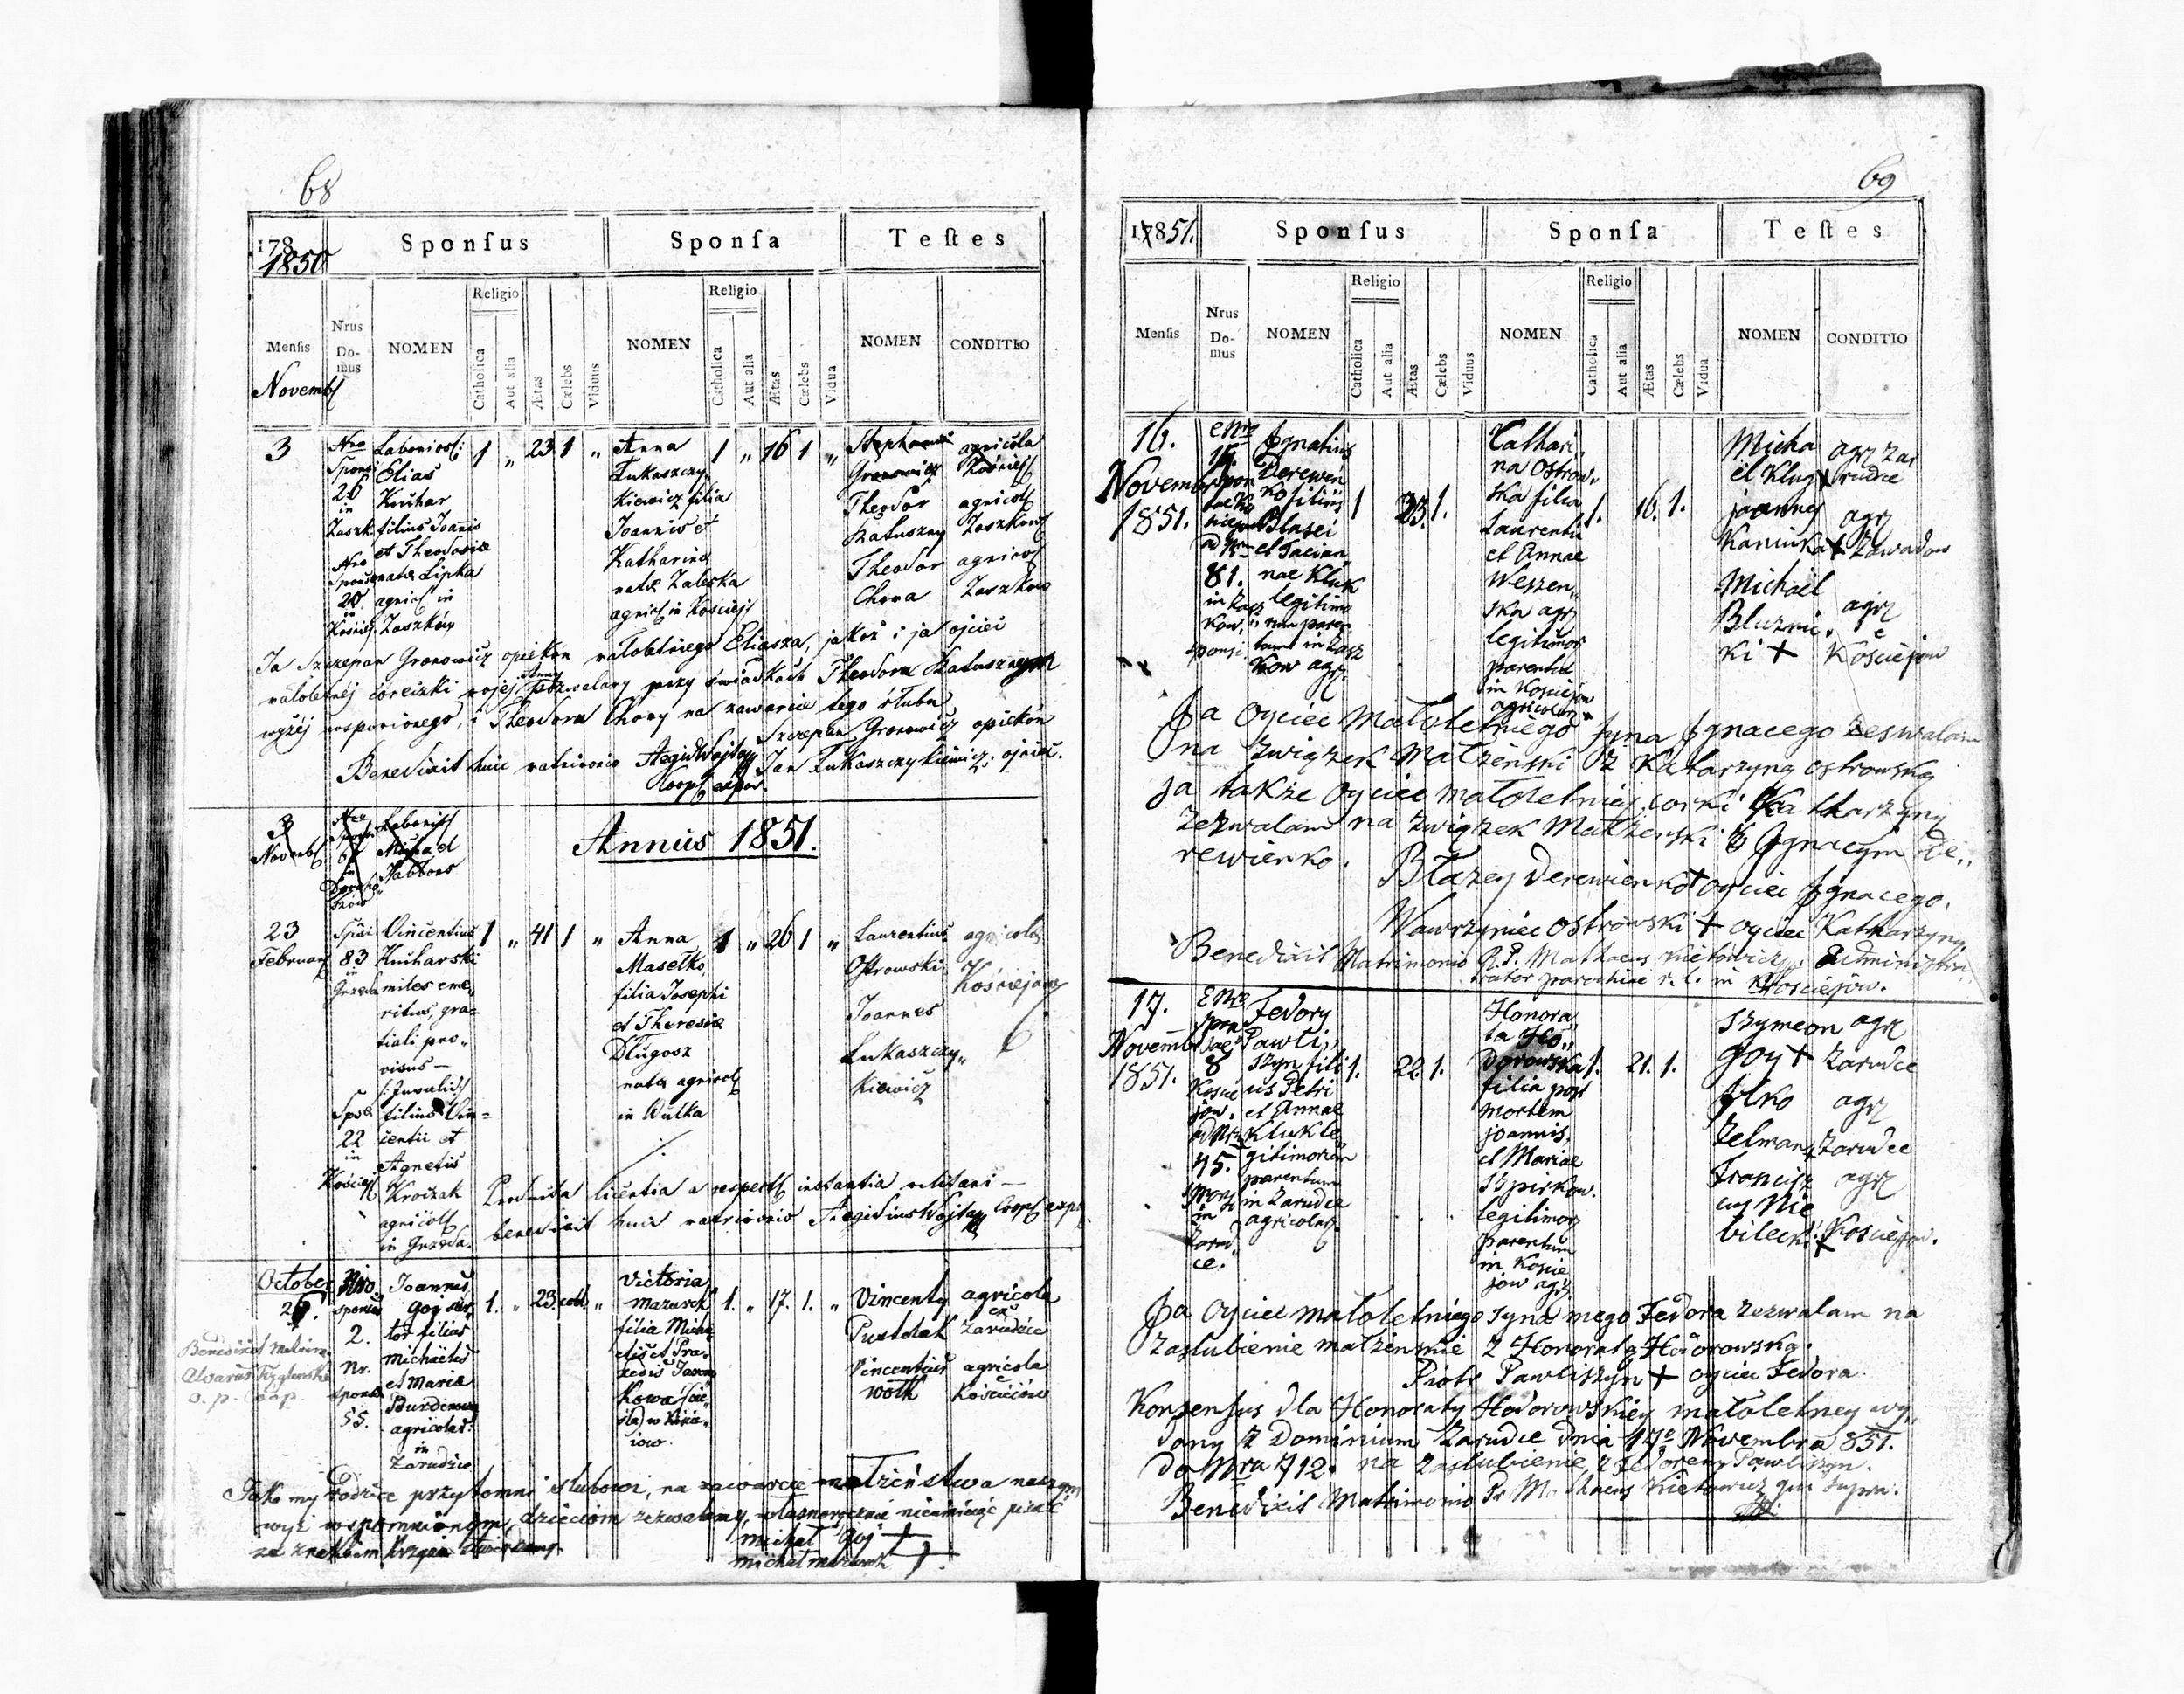 68
178
1850
Sponſus
Sponſa
Teſtes
Menſis
Nrus Do-mus
NOMEN
Religio
Catholica
Aut alia
Ætas
Cælebs
Viduus
NOMEN
Religio
Catholica
Aut alia
Ætas
Cælebs
Vidua
NOMEN
CONDITIO
Novemb
3
Nro
Sponsi
26
in
Zaszk.
Nro
Sponsæ
20
in
Kościej.
Elias
Kuchar
filius Joannis
et Theodosiæ
natæ Lipka
agric in
Zaszków
1 „ 23 1 „
Anna
Łukaszczy„
kiewicz filia
Joannis et
Katharinæ
natæ Zaleska
agric in Kościej
1 „ 16 1 „
Gronowicz
Theodor
Kałuszny
Theodor
Chona
agricola
agricol
Zaszków
agricol
Zaszków
Ja Szczepan Gronowicz opiekón małoletniego Eliasza, jakoż i ja ojciec
małoletnéj córeczki mojej Anny pozwalamy przy świadkach Theodora Kałusznym
wyżéj wspomionego, i Theodora Chony na zawarcie tego ślubu
Szczepan Gronowicz opiekón
Benedixit huic matrimonio Aegid Wojtag
Jan Łukaszczykiewicz ojciec.
Coop expos.
3
Novemb
Michael
Jabbors
Annus 1851.
23
Februar
Spsi
83
in
Grzęda
Spsæ
22
in
Kościej
Vincentius
Kucharski
miles eme„
ritus, gra=
tiali pro„
visus —
/: Invalid :/
filius Vin=
centii et
Agnetis
Kroczak
agricol
in Grzęda.
1 „ 41 1 „
Anna
Masełko
filia Josephi
et Theresiæ
Długosz
natæ agricol
in Wulka
1 „ 26 1 „
Laurentius
Ostrowski
Joannes
Łukaszczy„
kiewicz
agricolæ
Kościejow
Producta licentia a respect instantia militari —
benedixit huic matrimonio Aegidius Wojtag Coop expos
October
Nro.
sponsi
2.
Nr.
sponsæ
55.
Joannes
Goj
filius
Michaelis
et Mariæ
agricola
in
Zarudzie
1. „ 23 cæl. „
Victoria
Mazurek
filia Micha
elis et Pra=
xedis
1. „ 17. 1. „
Vincenty
Pustolak
Vincentius
Wołk
agricola
ex
Zarudzie
agricola
Kościejów
Benedixit Matrim.
o. p. Coop.
Jako my rodzice przytomni ślubowi, na zawarcie małżeństwa naszym
wyż wspomnionym dzieciom zezwalamy, własnoręcznie nieumiejąc pisać
znakiem krzyża
Michał Goj +
Michał Mazurek +
69
17851.
Sponſus
Sponſa
Teſtes
Menſis
Nrus Do-mus
NOMEN
Religio
Catholica
Aut alia
Ætas
Cælebs
Viduus
NOMEN
Religio
Catholica
Aut alia
Ætas
Cælebs
Vidua
NOMEN
CONDITIO
16.
Novembr
1851.
e Nro
15.
ad Nr
81.
in Zasz
kow.
sponsi
Ignatius
Dereweń
ko filius
Blasei
et Tacian„
nae Kluk
legitimo
rum paren
tum in Zasz
kow agr
1 23. 1.
Cathari„
na Ostrow„
ska filia
Laurentii
et Annae
Weszen„
ska agr
legitimor
parentum
in Kosciejow
agricolar
1. 16. 1.
Micha
el Kluz +
Joannes
Kaniuka +
Michael
Bluzni„
ki +
agr Za
rudce
agr
Zawadow
agr
e
Kosciejow
Ja Oyciec Małoletniego Syna Ignacego zeswalam
na związek Małżeński z Katarzyną Ostrowską
ja także Oyciec małoletniej corki Katharzyny
zezwalam na związek Małżenski z Ignacym De„
rewienko.
Błażey Derewienko + oyciec Ignacego.
Wawrzyniec Ostrowski + oyciec Katharzyny.
Benedixit Matrimonio R.P. Mathaeus Kietowicz Administra„
trator parochiae r. l. in Kosciejów.
17.
Novembr
1851.
E Nro
spon
sae
8
Koscie
jow.
ad Nr
45.
spons
in
Zarud„
ce.
Fedory
Pawli„
szyn fili
us Petri
et Annae
Kluk le„
gitimorum
parentum
in Zarudce
agricolar
1. 22. 1.
Honora„
ta Ho„
dorowska
filia post
mortem
Joannis
et Mariae
Szpirkow.
legitimor
parentum
in Koscie
jow agr
1. 21. 1.
Szymeon
Goy +
Ilko
Zelman +
Francisz
cus Nie
bilecki +
agr
Zarudce
agr
Zarudce
agr
Kosciejow.
Ja Oyciec małoletniego Syna mego Fedora zezwalam na
zaslubienie małzennie z Honoratą Hodorowską.
Piotr Pawliszyn + oyciec Fedora.
Konsensus dla Honoraty Hodorowskiey małoletney wy„
dany z Dominium Zarudce dnia 17o Novembra 851.
do Nru 712. na zaslubienie z Fedorem Pawliszyn.
Benedixit Matrimonio Pr Mathaeus Kietowicz qui supra.